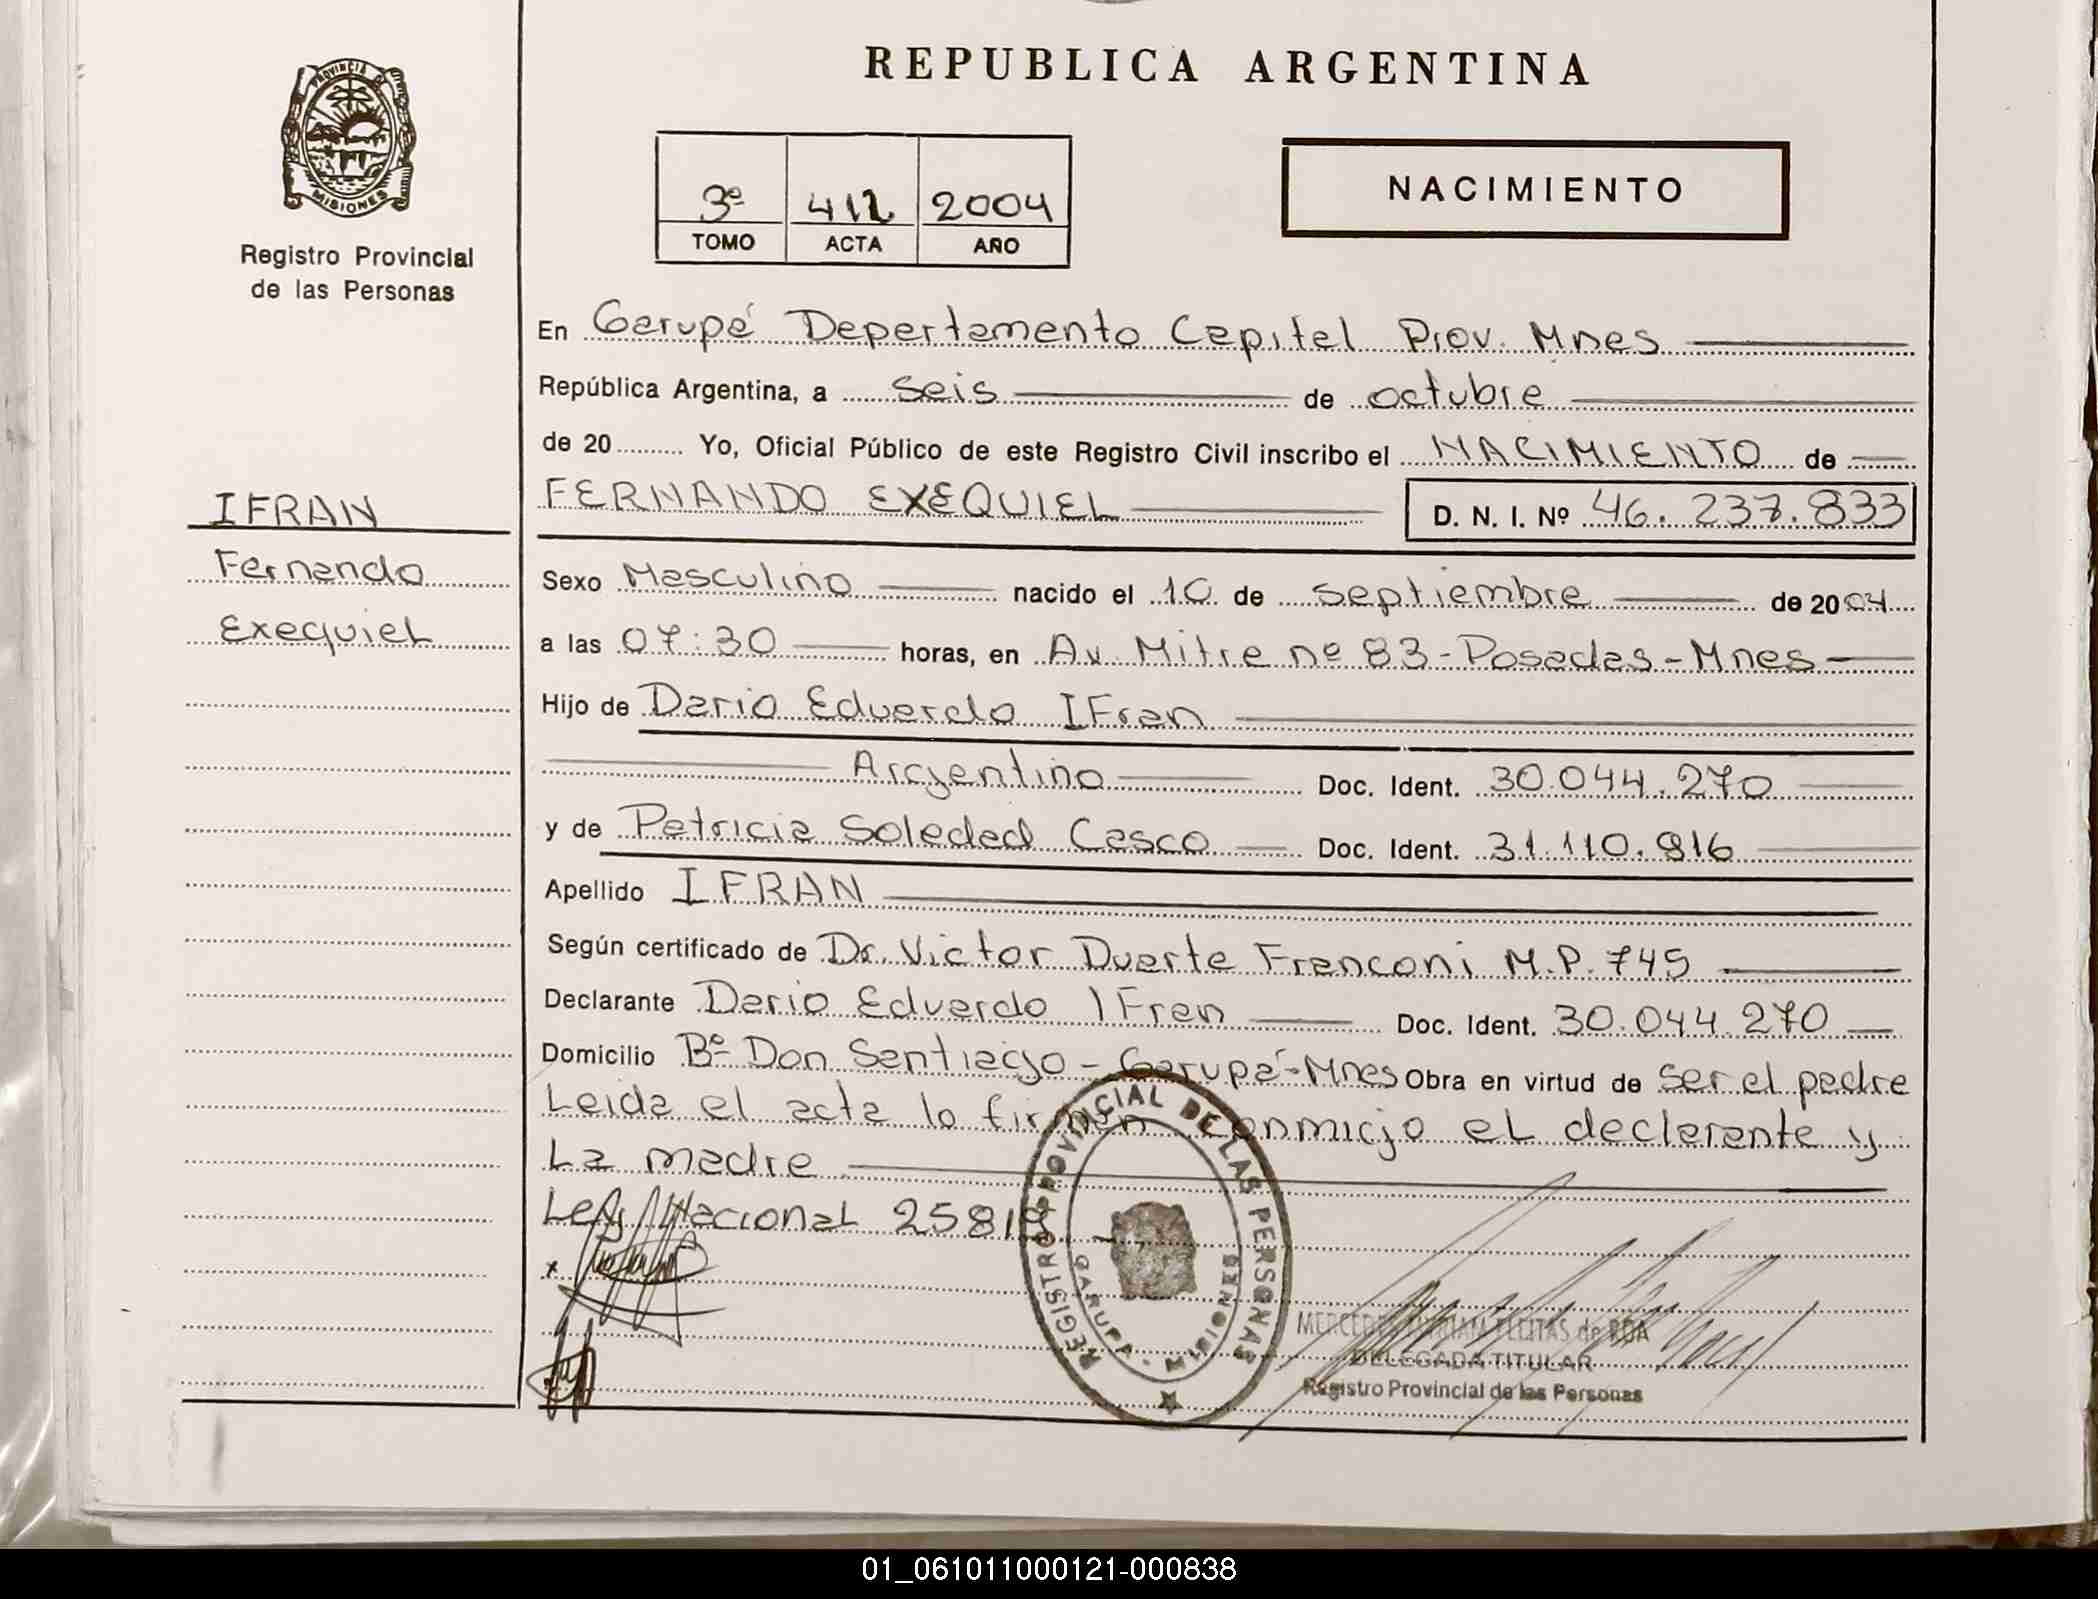 REPUBLICA ARGENTINA
PROVINCIA DE
MISIONES
Registro Provincial
de las Personas
3º 412 2004
TOMO ACTA AÑO
NACIMIENTO
En Garupá Departamento Capital Prov. Mnes
República Argentina, a seis de octubre
de 20 Yo, Oficial Público de este Registro Civil inscribo el NACIMIENTO de
FERNANDO EXEQUIEL D. N. I. Nº 46.237.833
IFRAN
Fernando
Exequiel
Sexo Masculino nacido el 10 de septiembre de 2004
a las 07:30 horas, en Av. Mitre nº 83-Posadas-Mnes
Hijo de Dario Eduardo IFran
Argentino Doc. Ident. 30.044.270
y de Patricia Soledad Casco Doc. Ident. 31.110.816
Apellido IFRAN
Según certificado de Dr. Victor Duarte Franconi M.P. 745
Declarante Dario Eduardo IFran Doc. Ident. 30.044.270
Domicilio Bº Don Santiago - Garupá-Mnes Obra en virtud de ser el padre
Leida el acta lo firman conmigo el declarante y
La madre
Ley Nacional 25819
REGISTRO PROVINCIAL DE LAS PERSONAS
GARUPA - MISIONES
MERCEDES MYRIAM FLEITAS de ROA
DELEGADA TITULAR
Registro Provincial de las Personas
01_061011000121-000838